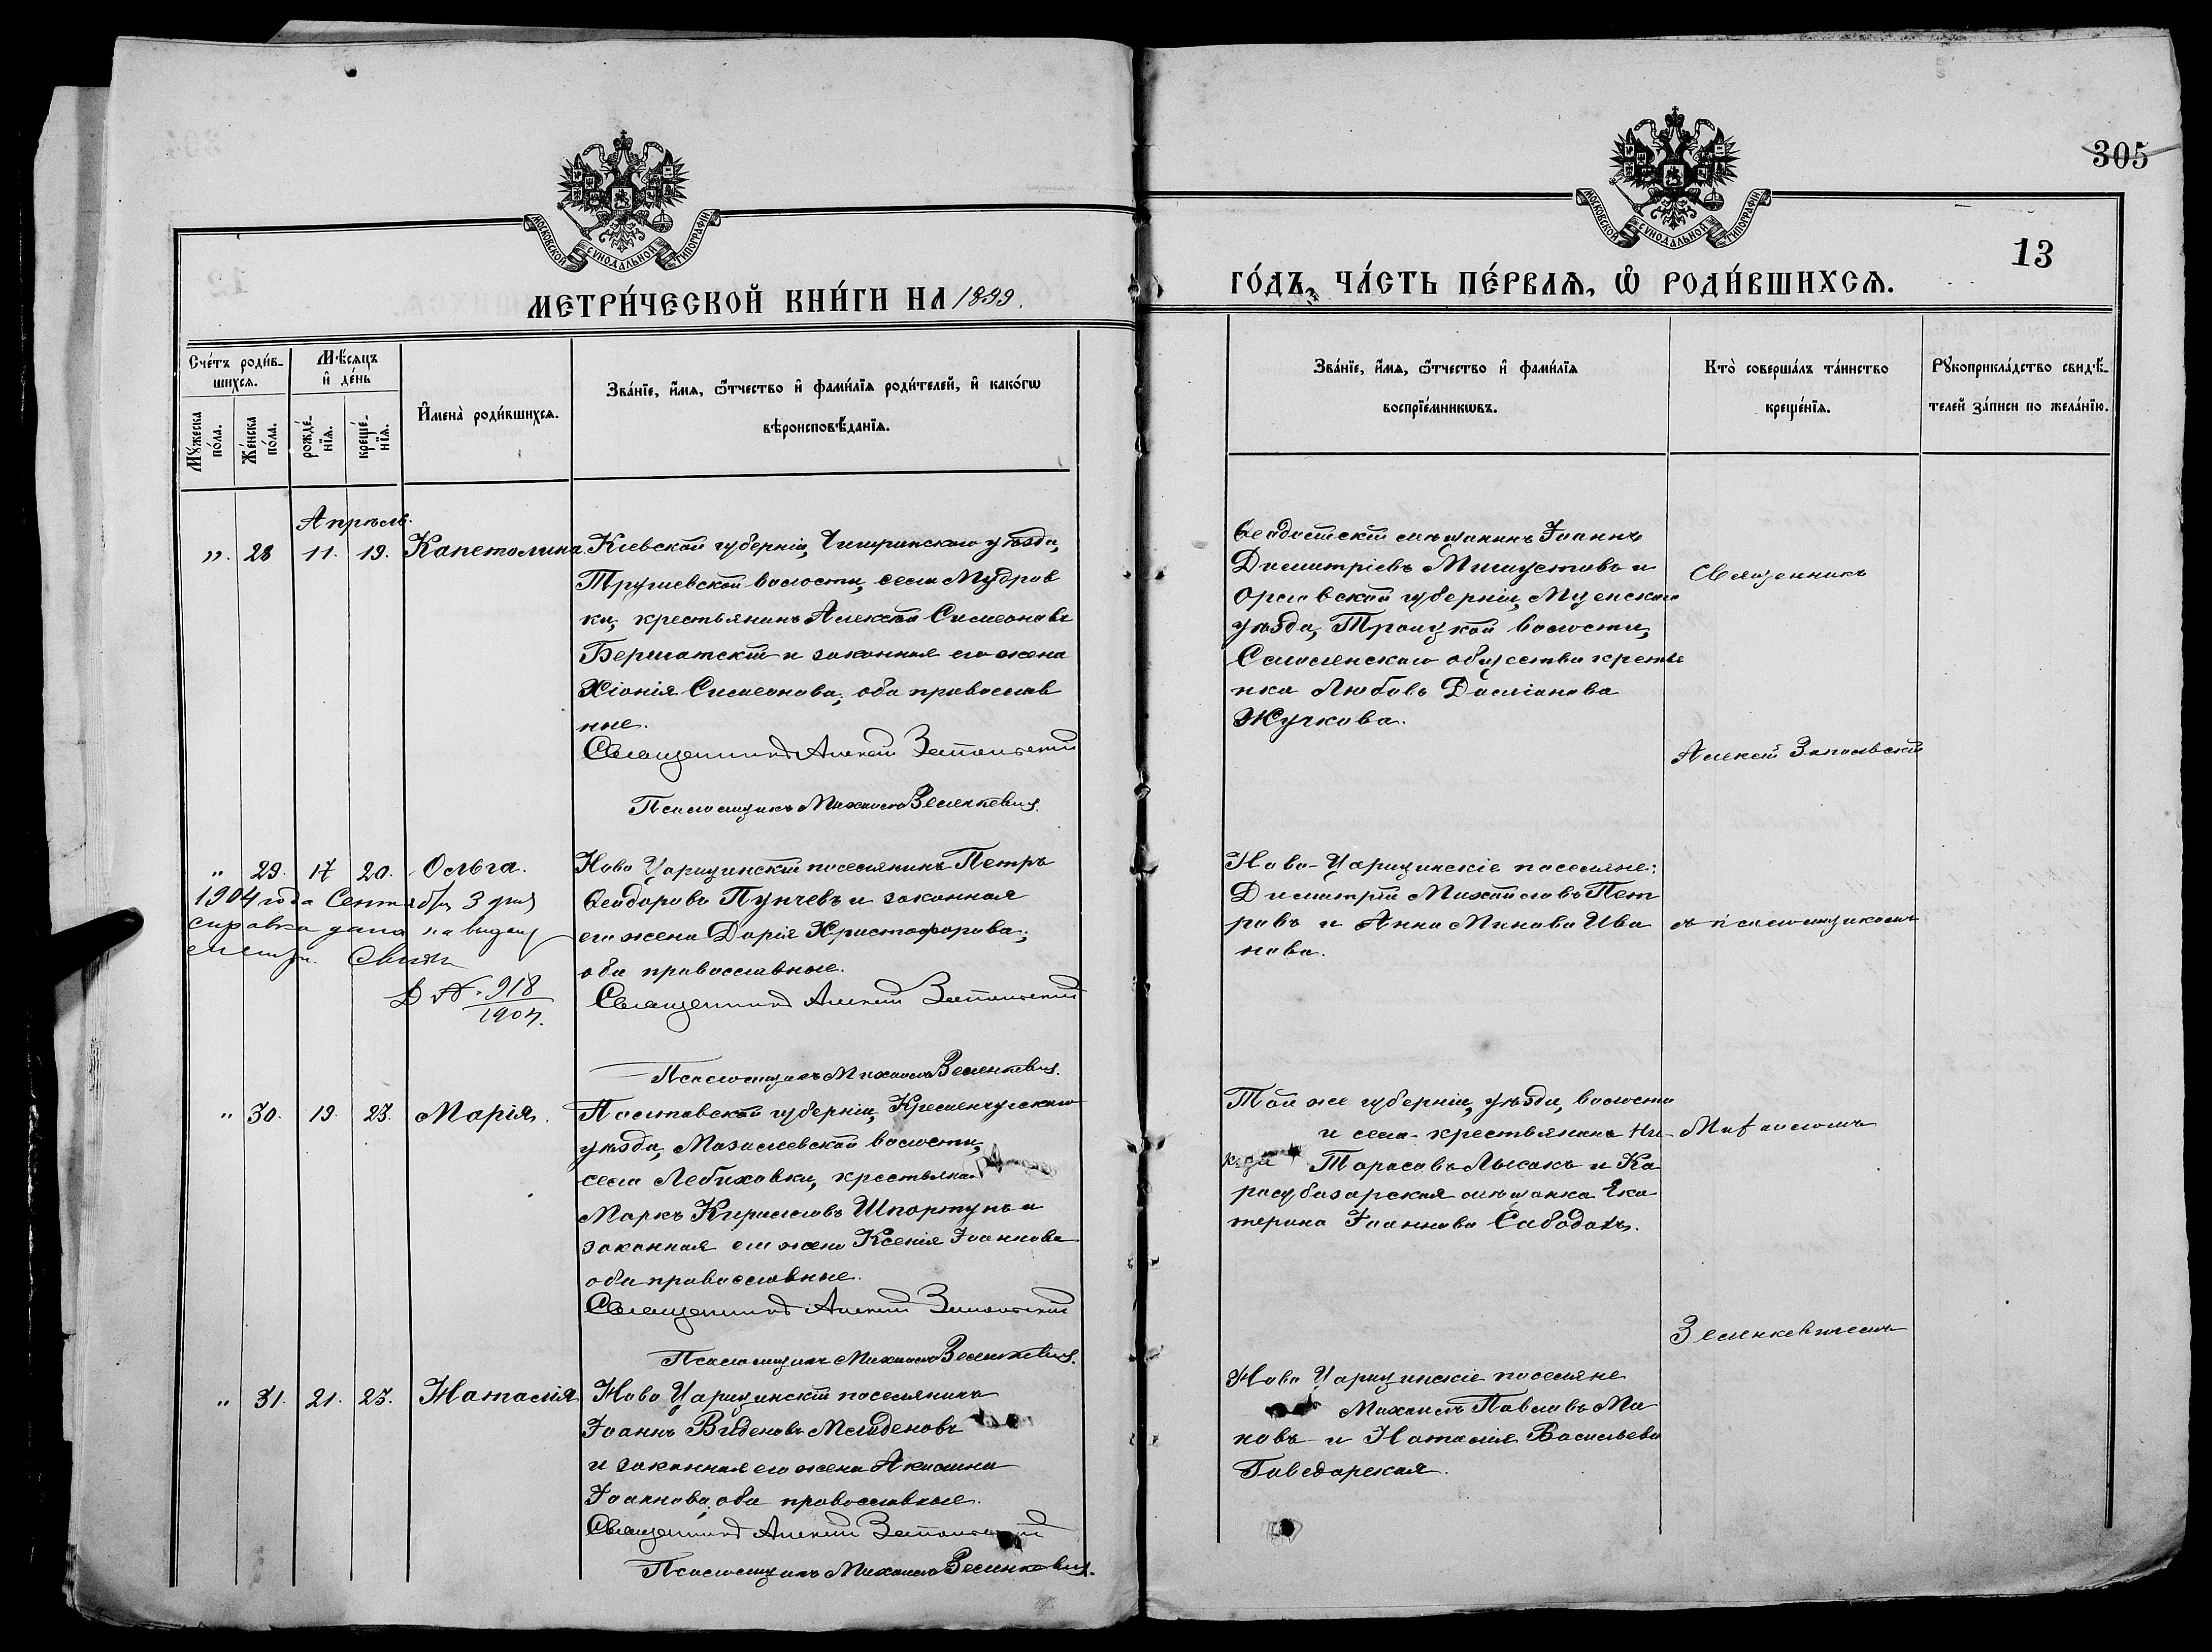 305
13
МОСКОВСКОЙ СУНОДАЛЬНОЙ ТИПОГРАФІИ
МОСКОВСКОЙ СУНОДАЛЬНОЙ ТИПОГРАФІИ
МЕТРИ́ЧЕСКОЙ КНИ́ГИ НА 1899.
ГО́ДЪ, ЧА́СТЬ ПЕ́РВАѦ, Ѡ҆ РОДИ́ВШИХСѦ.
Сче́тъ роди́в-
шихсѧ.
Мꙋ́жеска по́ла.
Же́нска по́ла.
Мѣ́сѧцъ
и҆ де́нь
рожде́-
нїѧ.
креще́-
нїѧ.
И҆мена̀ роди́вшихсѧ.
Зва́нїе, и҆́мѧ, ѻ҆́тчество и҆ фами́лїѧ роди́телей, и҆ како́гѡ
вѣроисповѣ́данїѧ.
Зва́нїе, и҆́мѧ, ѻ҆́тчество и҆ фами́лїѧ
воспрїе́мникѡвъ.
Кто̀ соверша́лъ та́инство
креще́нїѧ.
Рꙋкоприкла́дство свидѣ́-
телей за́писи по жела́нїю.
Апрѣль.
„ 28 11. 19. Капетолина
Кіевской губерніи, Чигиринскаго уѣзда,
Трушевской волости, села Мудров
ки, крестьянинъ Алексѣй Симеоновъ
и законная его жена
Хіонія Симеонова; оба православ
ные.
Священникъ Алексій Запольскій
Псаломщикъ Михаилъ Зеленкевич.
Ѳеодосійскій мѣщанинъ Іоаннъ
Димитріевъ и
Орловской губерніи, Мценскаго
уѣзда, Троицкой волости,
общества крестья
нка Любовь Даміанова
Жучкова.
Священникъ
Алексій Запольскій
„ 29. 17 20. Ольга.
1904 года Сентября 3 дня
справка дана на выдачу
метри. Свид
№ 918
1904.
Ново Царицинскій поселянинъ Петръ
Ѳеодоровъ Пунчевъ и законная
его жена Дарія Христофорова;
оба православные.
Священникъ Алексій Запольскій
Псаломщикъ Михаилъ Зеленкевич.
Ново-Царицинскіе поселяне:
Димитрій Михайловъ Пет
ровъ и Анна Минова Ива
нова.
съ псаломщикомъ
„ 30. 19. 23. Марія.
Полтавской губерніи, Кременчугскаго
уѣзда, волости,
села Лебиховки, крестьянинъ
Маркъ Кирилловъ Шпортунъ и
законная его жена Ксенія Іоаннова
оба православные.
Священникъ Алексій Запольскій
Псаломщикъ Михаилъ Зеленкевич.
Той же губерніи, уѣзда, волости
и села крестьянинъ Ни-
Тарасовъ Лысакъ и Ка
расубазарская мѣщанка Ека
терина Іоаннова
Михаиломъ
Зеленкевичемъ
„ 31. 21. 23. Наталія
Ново Царицинскій поселянинъ
Іоаннъ Виденовъ Млиденовъ
и законная его жена Акилина
Іоаннова; оба православные.
Священникъ Алексій Запольскій
Псаломщикъ Михаилъ Зеленкевич.
Ново Царицинскіе поселяне
Михаилъ Павловъ Ми
новъ и Наталія Васильева
Гаведарская.